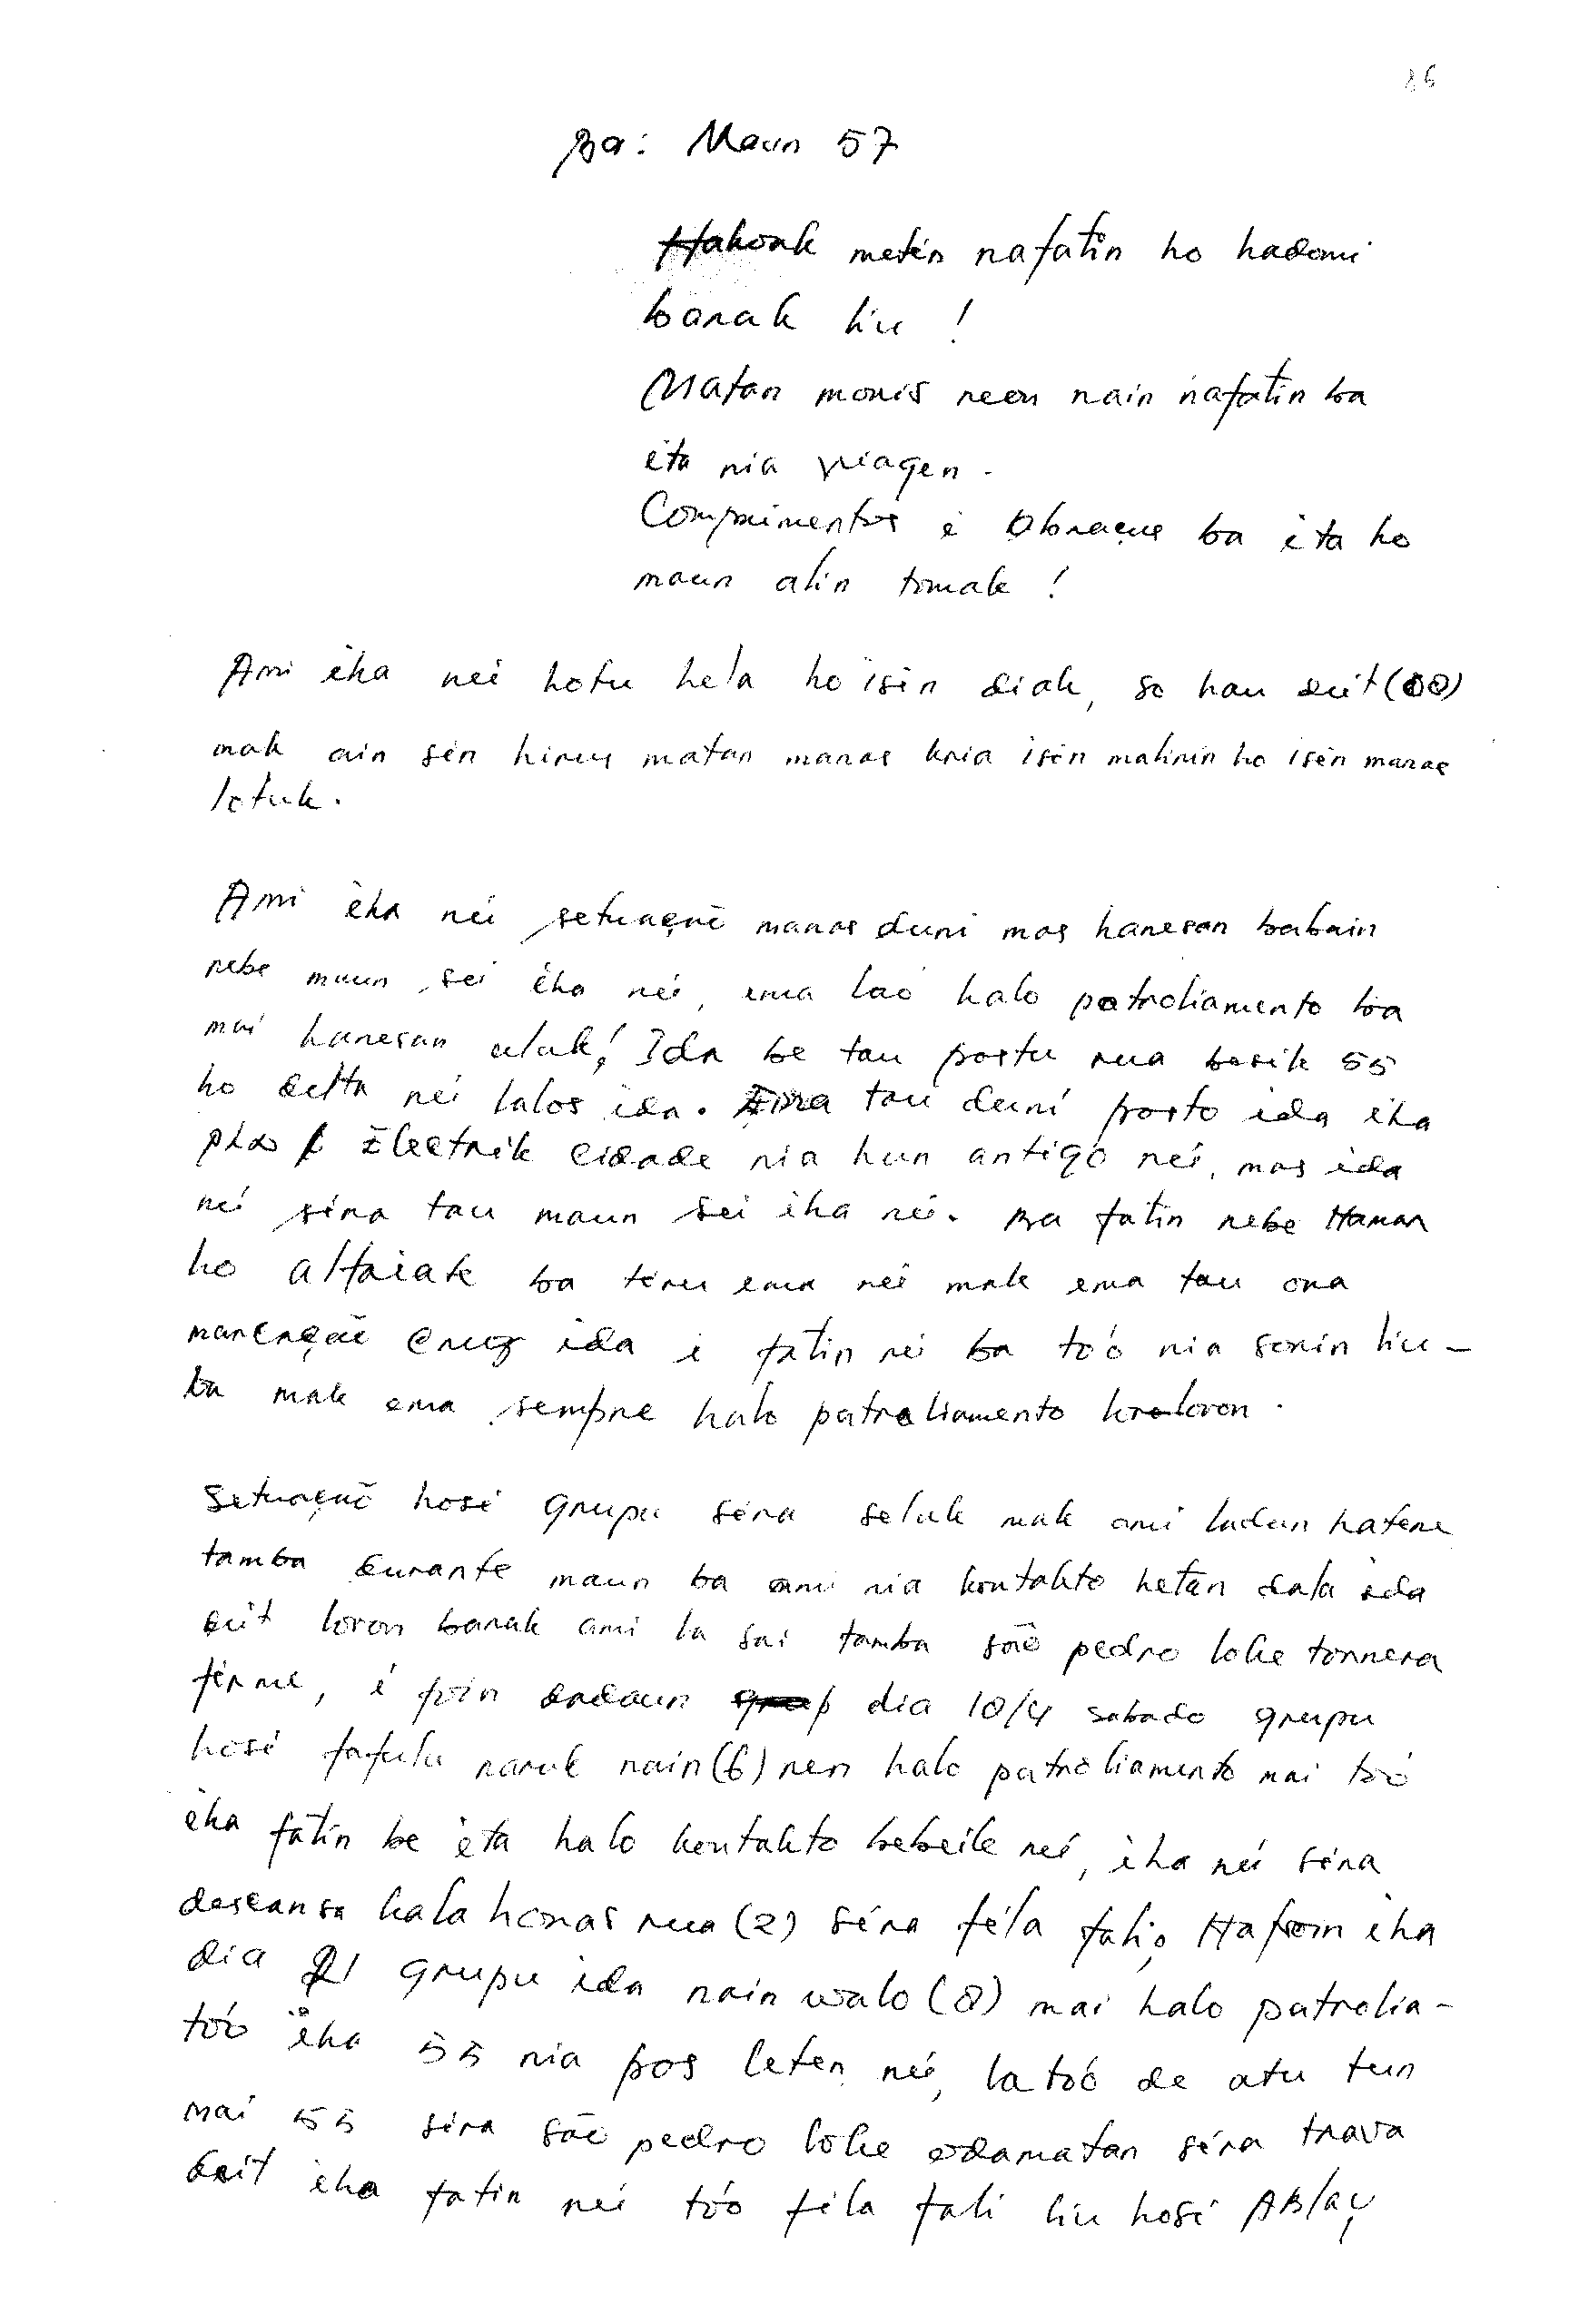 86
Ba: Maun 57
Hakoak metin nafatin ho hadomi
barak liu !
Matan moris neon nain nafatin ba
ita nia viagen.
Comprimentos i Abraços ba ita ho
maun alin tomak !
Ami iha nei hotu hela ho isin diak, so hau deit (00)
mak ain sin hirus matan manas kria isin malirin ho isin manas
lotuk.
Ami iha nei setuação manas duni mos hanesan babain
nebe maun sei iha nei, ema lao halo patroliamento ba
mai hanesan uluk! Ida be tau postu rua besik 55
ho delta nei lalos ida. Sira tau duni posto ida iha
Electrik cidade nia hun antigo nei, mas ida
nei sira tau maun sei iha nei. Ba fatin nebe Maman
ho alfaiate ba tiru ema nei mak ema tau ona
marcação cruz ida i fatin nei ba tóo nia sorin liu-
ba mak ema sempre halo patroliamento loroloron.
Setuação hosi grupu sira seluk mak ami ladun hatene
tamba durante maun ba ami nia kontakto hetan dala ida
deit loron barak ami la sai tamba são pedro loke tornera
firme, i foin dadaun dia 10/4 sabado grupu
hosi fafulu naruk nain (6) nen halo patroliamento mai tóo
iha fatin be ita halo kontakto bebeik nei, iha nei sira
descansa kala horas rua (2) sira fila fali, Hafoin iha
dia 21 grupu ida nain walo (8) mai halo patrolia-
tóo iha 55 nia pos leten nei, la tóo de atu tun
mai 55 sira são pedro loke odamatan sira trava
deit iha fatin nei tóo fila fali liu hosi